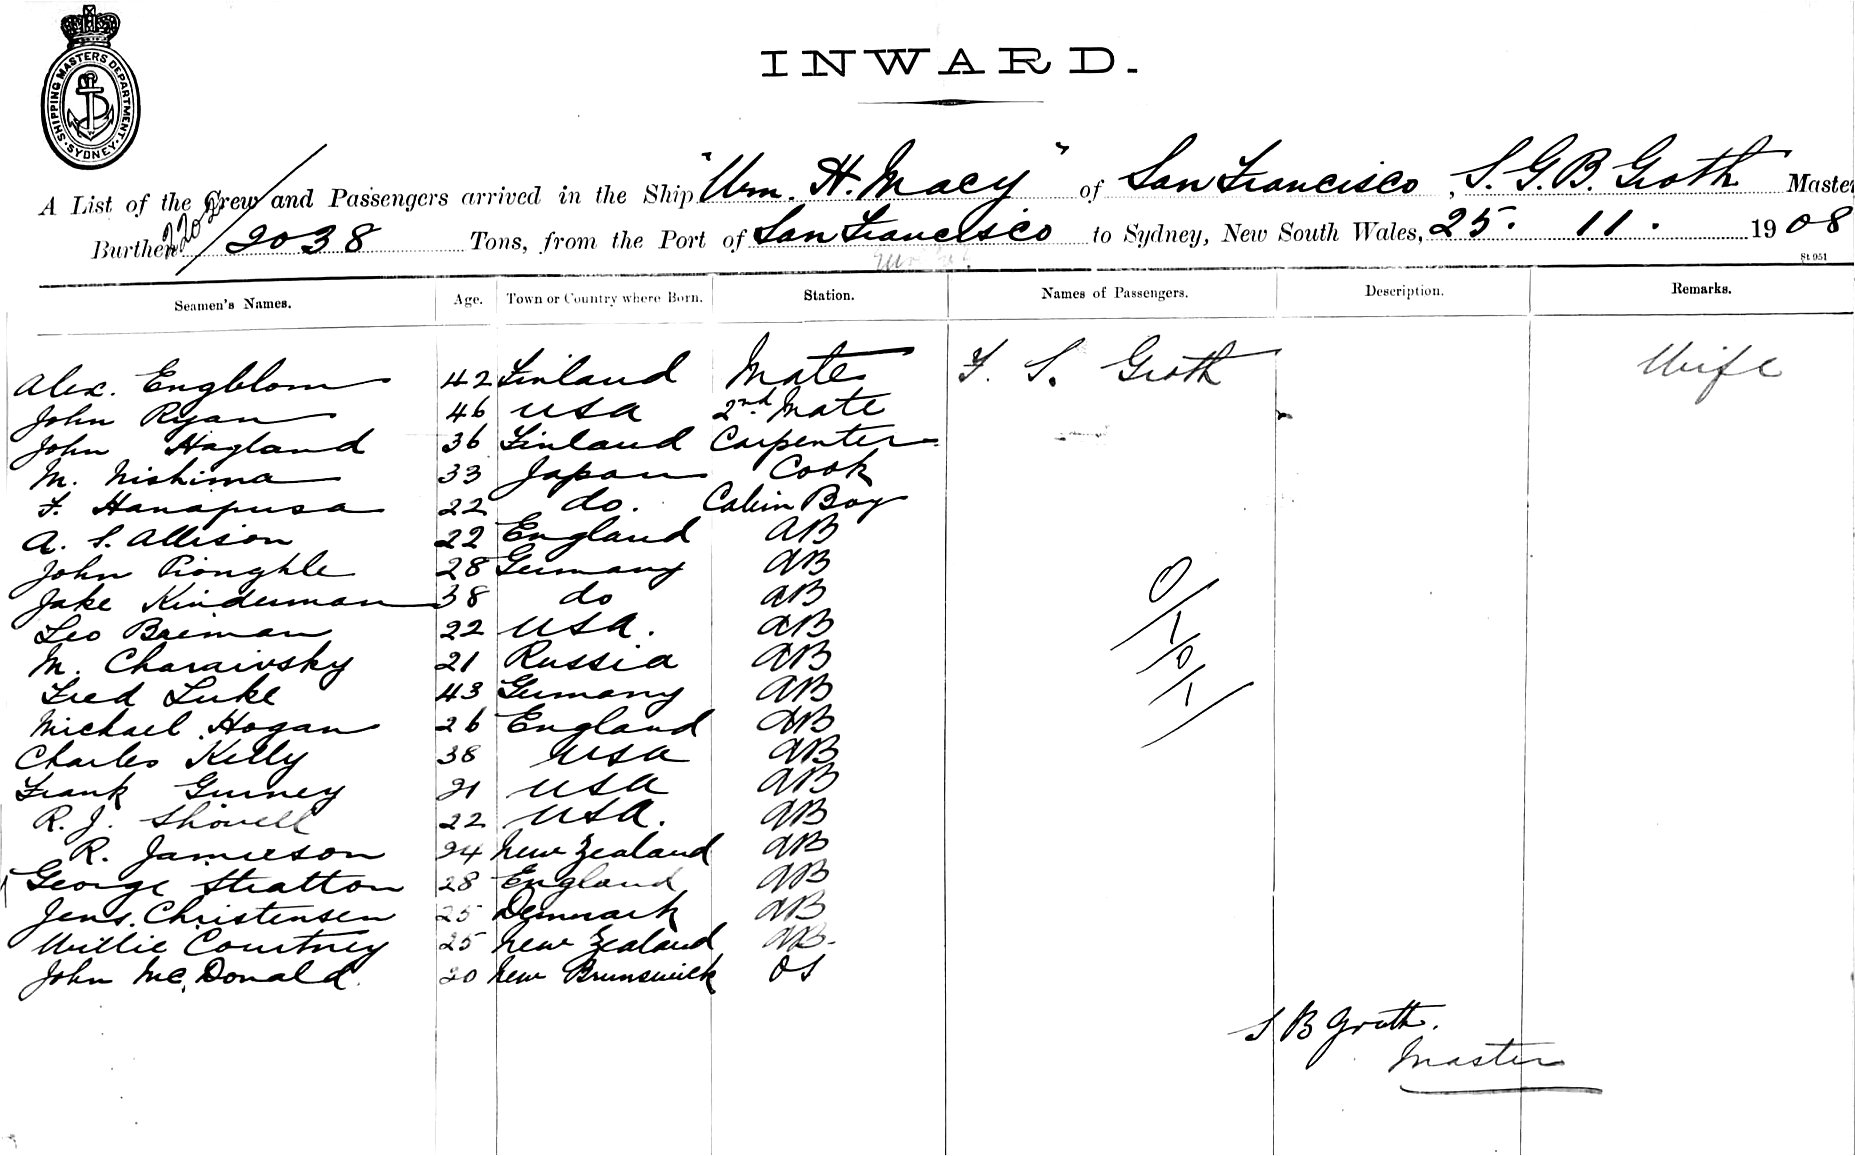 SHIPPING MASTERS DEPARTMENT. SYDNEY.
INWARD.
A List of the Crew and Passengers arrived in the Ship "Wm. H. Macy" of San Francisco, S. G. B. Groth Master
Burthen 2202/2038 Tons, from the Port of San Francisco to Sydney, New South Wales, 25. 11. 1908
St 951
Seamen's Names. Age. Town or Country where Born. Station. Names of Passengers. Description. Remarks.
Alex. Engblom 42 Finland Mate F. S. Groth Wife
John Ryan 46 USA 2nd Mate
John Hagland 36 Finland Carpenter
M. Nishima 33 Japan Cook
F. Hanapusa 22 do. Cabin Boy
A. S. Allison 22 England AB
John 28 Germany AB
Jake Kinderman 38 do AB
Leo Breiman 22 USA. AB
M. Charaivsky 21 Russia AB
Fred Luke 43 Germany AB
Michael Hogan 26 England AB
Charles Kelly 38 USA AB
Frank Gurney 21 USA AB
R. J. Showell 22 USA. AB
R. Jamieson 24 New Zealand AB
George Stratton 28 England AB
Jens. Christensen 25 Denmark AB
Willie Courtney 25 New Zealand AB.
John McDonald. 20 New Brunswick OS
0/1/0/1/
S B Groth.
Master